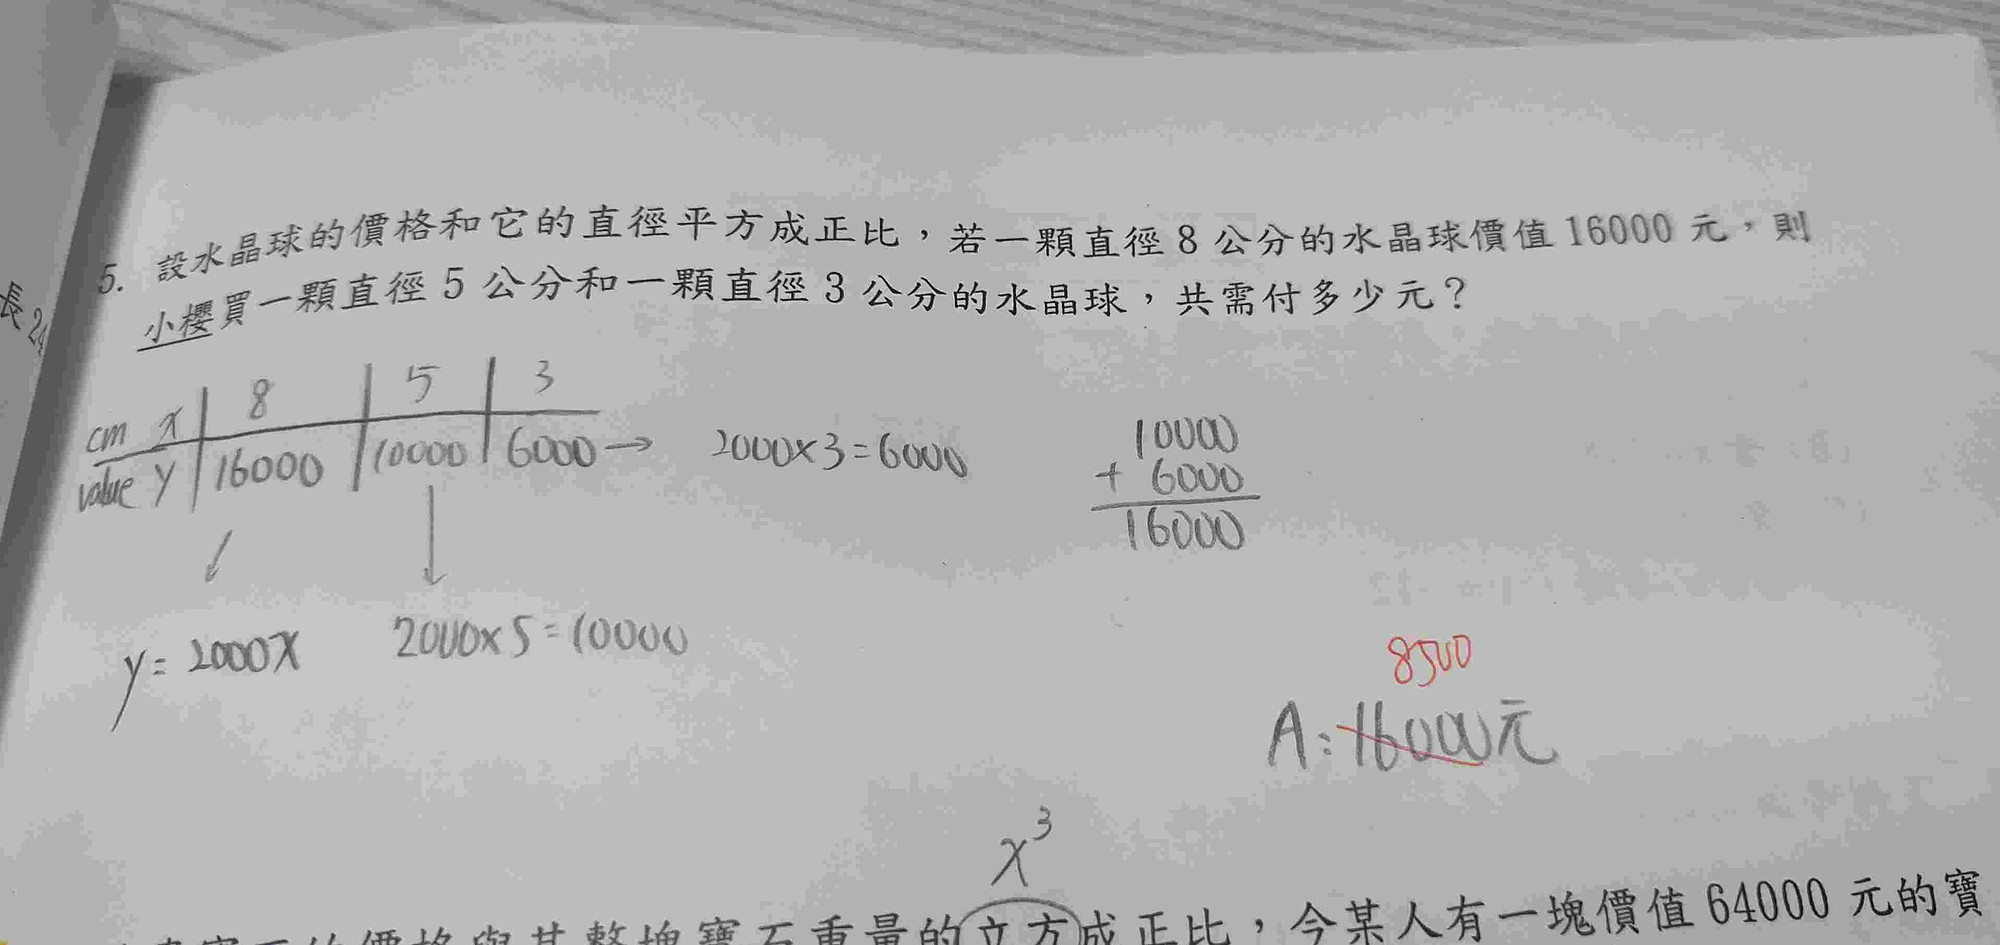 長 24
5. 設水晶球的價格和它的直徑平方成正比，若一顆直徑 8 公分的水晶球價值 16000 元，則
小櫻買一顆直徑 5 公分和一顆直徑 3 公分的水晶球，共需付多少元？
cm x 8 5 3
value y 16000 10000 6000 → 2000×3=6000
10000
+ 6000
16000
y = 2000x 2000×5=10000
8500
A：16000元
x³
的價格與其整塊寶石重量的立方成正比，今某人有一塊價值 64000 元的寶